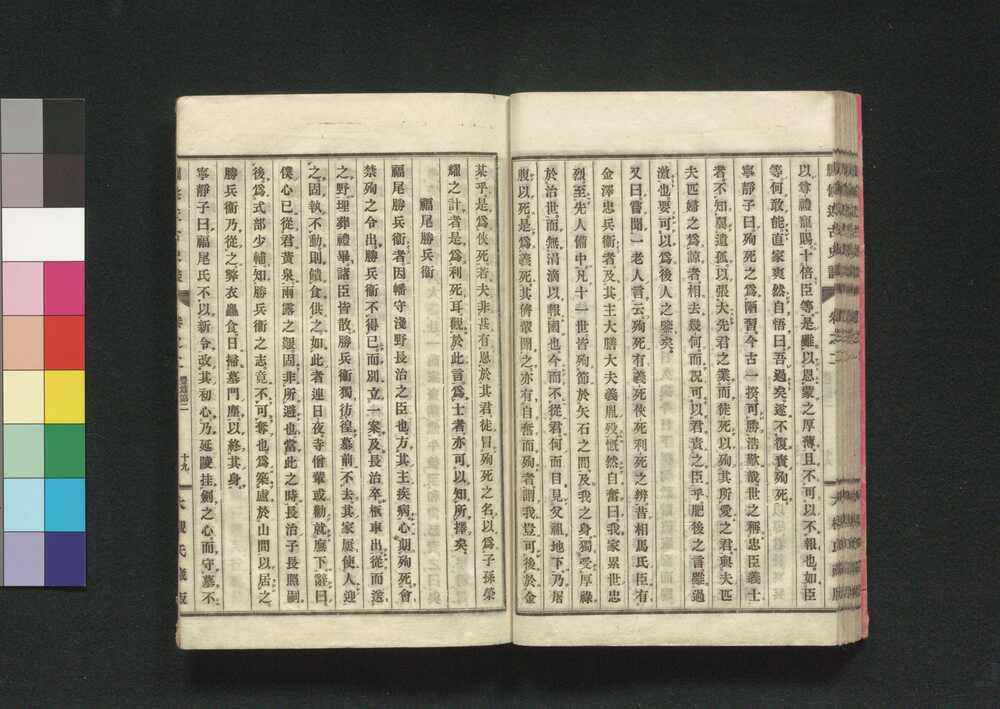 以尊禮寵賜十倍臣等是雖以恩蒙之厚薄且不可以不報也如臣
等何敢能直家爽然自悟曰吾過矣遂不復責殉死
寧靜子曰殉死之爲陋習今古一揆可勝浩歎哉世之稱忠臣義士
者不知襄遺孤以張大先君之業而徒死以殉其所愛之君與夫匹
夫匹婦之爲諒者相去幾何而況可以君責之臣乎肥後之言雖過
激也要可以爲後人之鑒矣
又曰嘗聞一老人言云殉死有義死俠死利死之辨昔相馬氏臣有
金澤忠兵衞者及其主大膳大夫義胤歿慨然自奮曰我家累世忠
烈至先人備中凡十一世皆殉節於矢石之間及我之身獨受厚祿
於治世而無涓滴以報國也今而不從君何面目見父祖地下乃屠
腹以死是爲義死其儕輩聞之亦有自奮而殉者謂我豈可後於金
某乎是爲俠死若夫非甚有恩於其君徒冒殉死之名以爲子孫榮
耀之計者是爲利死耳觀於此言爲士者亦可以知所擇矣
福尾勝兵衞
福尾勝兵衞者因幡守淺野長治之臣也方其主疾病心期殉死會
禁殉之令出勝兵衞不得已而別立一案及長治卒柩車出從而送
之野理葬禮畢諸臣皆散勝兵衞獨彷徨墓前不去其家屢使人迎
之固執不動則饋食供之如此者連日夜寺僧輩或勸就廡下辭曰
僕心已從君黃泉雨露之艱固非所避也當此之時長治子長照嗣
後爲式部少輔知勝兵衞之志竟不可奪也爲築廬於山間以居之
勝兵衞乃從之弊衣麤食日掃墓門塵以終其身
寧靜子曰福尾氏不以新令改其初心乃延陵挂劍之心而守墓不
卷之二
十九